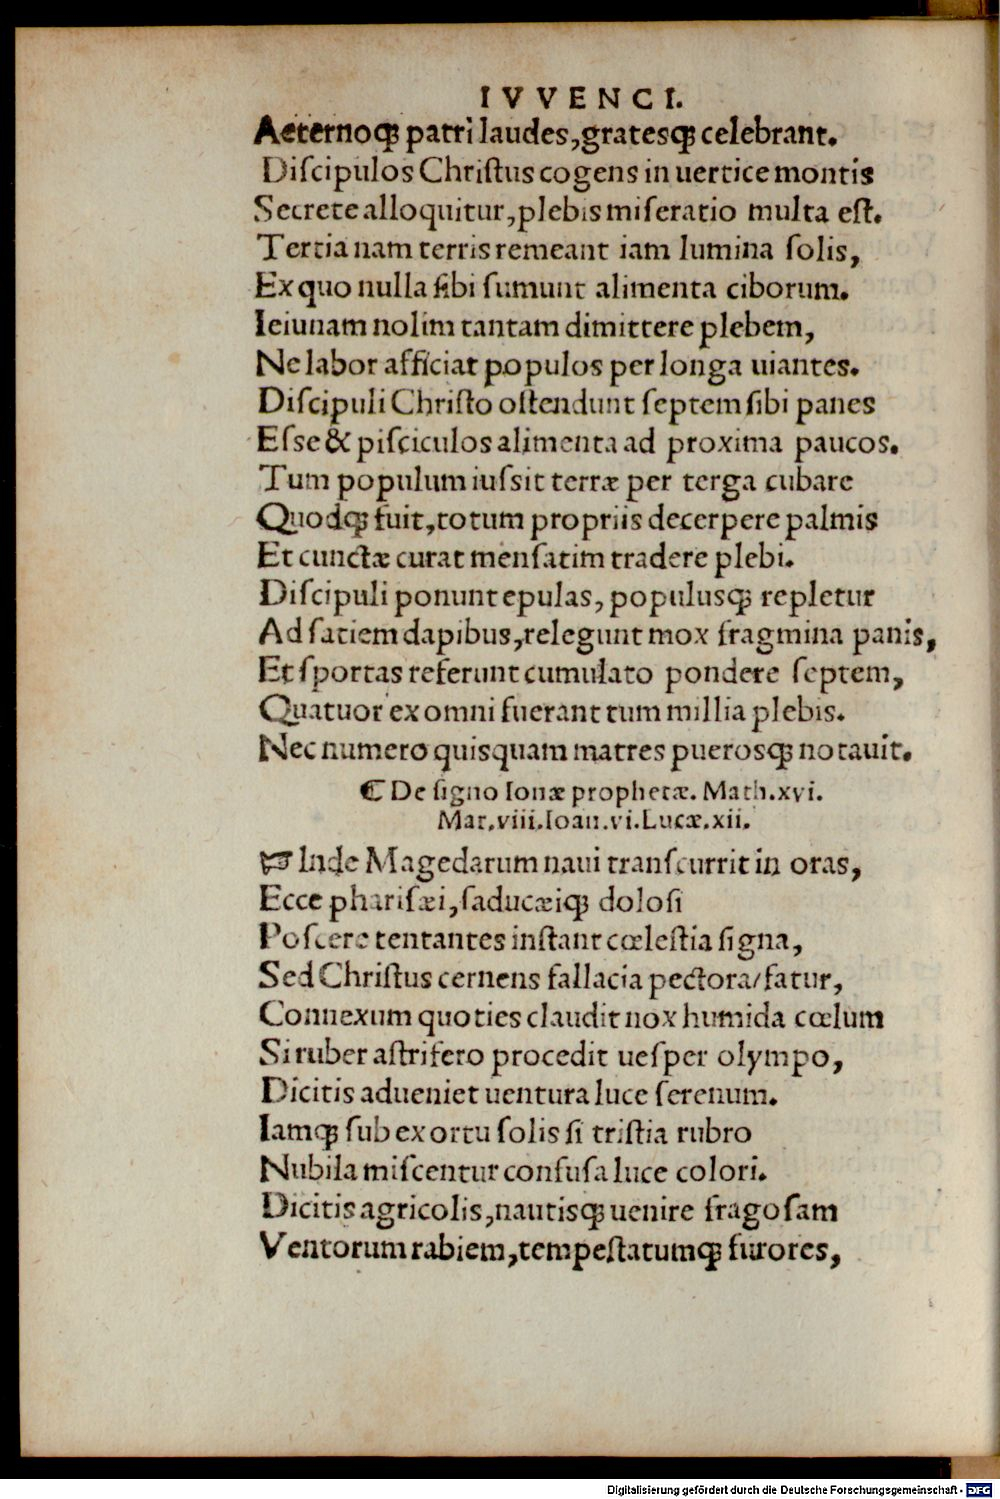 IVVENCI.
Aeternoqꝫ patri laudes, gratesqꝫ celebrant.
Diſcipulos Chriſtus cogens in uertice montis
Secrete alloquitur, plebis miſeratio multa eſt.
Tertia nam terris remeant iam lumina ſolis,
Ex quo nulla ſibi ſumunt alimenta ciborum.
Ieiunam nolim tantam dimittere plebem,
Ne labor afficiat populos per longa uiantes.
Diſcipuli Chriſto oſtendunt ſeptem ſibi panes
Eſse & piſciculos alimenta ad proxima paucos.
Tum populum iuſsit terræ per terga cubare
Quodqꝫ fuit, totum propriis decerpere palmis
Et cunctæ curat menſatim tradere plebi.
Diſcipuli ponunt epulas, populusqꝫ repletur
Ad ſatiem dapibus, relegunt mox fragmina panis,
Et ſportas referunt cumulato pondere ſeptem,
Quatuor ex omni fuerant tum millia plebis.
Nec numero quisquam matres puerosqꝫ notauit.
⸿ De ſigno Ionæ prophetæ. Math.xvi.
Mar.viii.Ioan.vi.Lucæ.xii.
☞ Inde Magedarum naui tranſcurrit in oras,
Ecce phariſæi, ſaducæiqꝫ doloſi
Poſcere tentantes inſtant cœleſtia ſigna,
Sed Chriſtus cernens fallacia pectora/fatur,
Connexum quoties claudit nox humida cœlum
Si ruber aſtrifero procedit ueſper olympo,
Dicitis adueniet uentura luce ſerenum.
Iamqꝫ ſub exortu ſolis ſi triſtia rubro
Nubila miſcentur confuſa luce colori.
Dicitis agricolis, nautisqꝫ uenire fragoſam
Ventorum rabiem, tempeſtatumqꝫ furores,
Digitalisierung gefördert durch die Deutsche Forschungsgemeinschaft - DFG